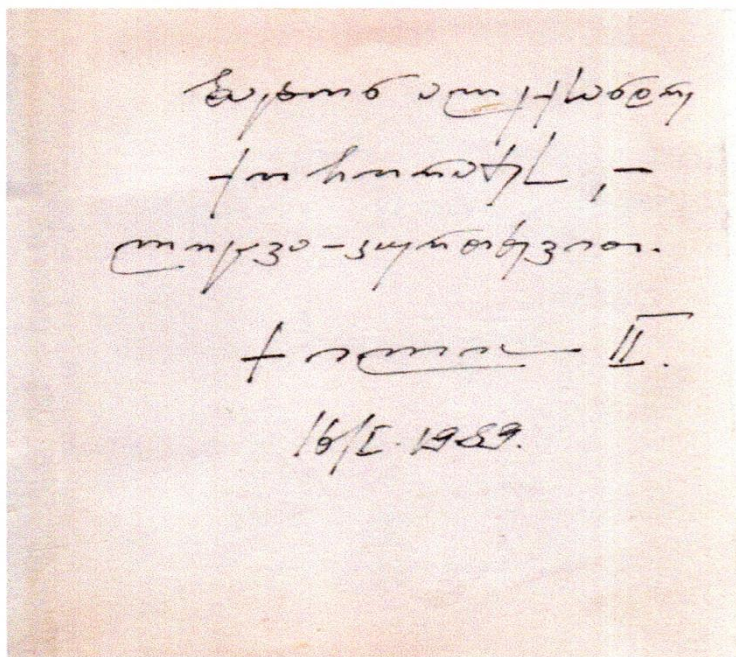 ბატონ ალექსანდრე
ლოცვა-კურთხევით.
† ილია II.
16/I-1989.